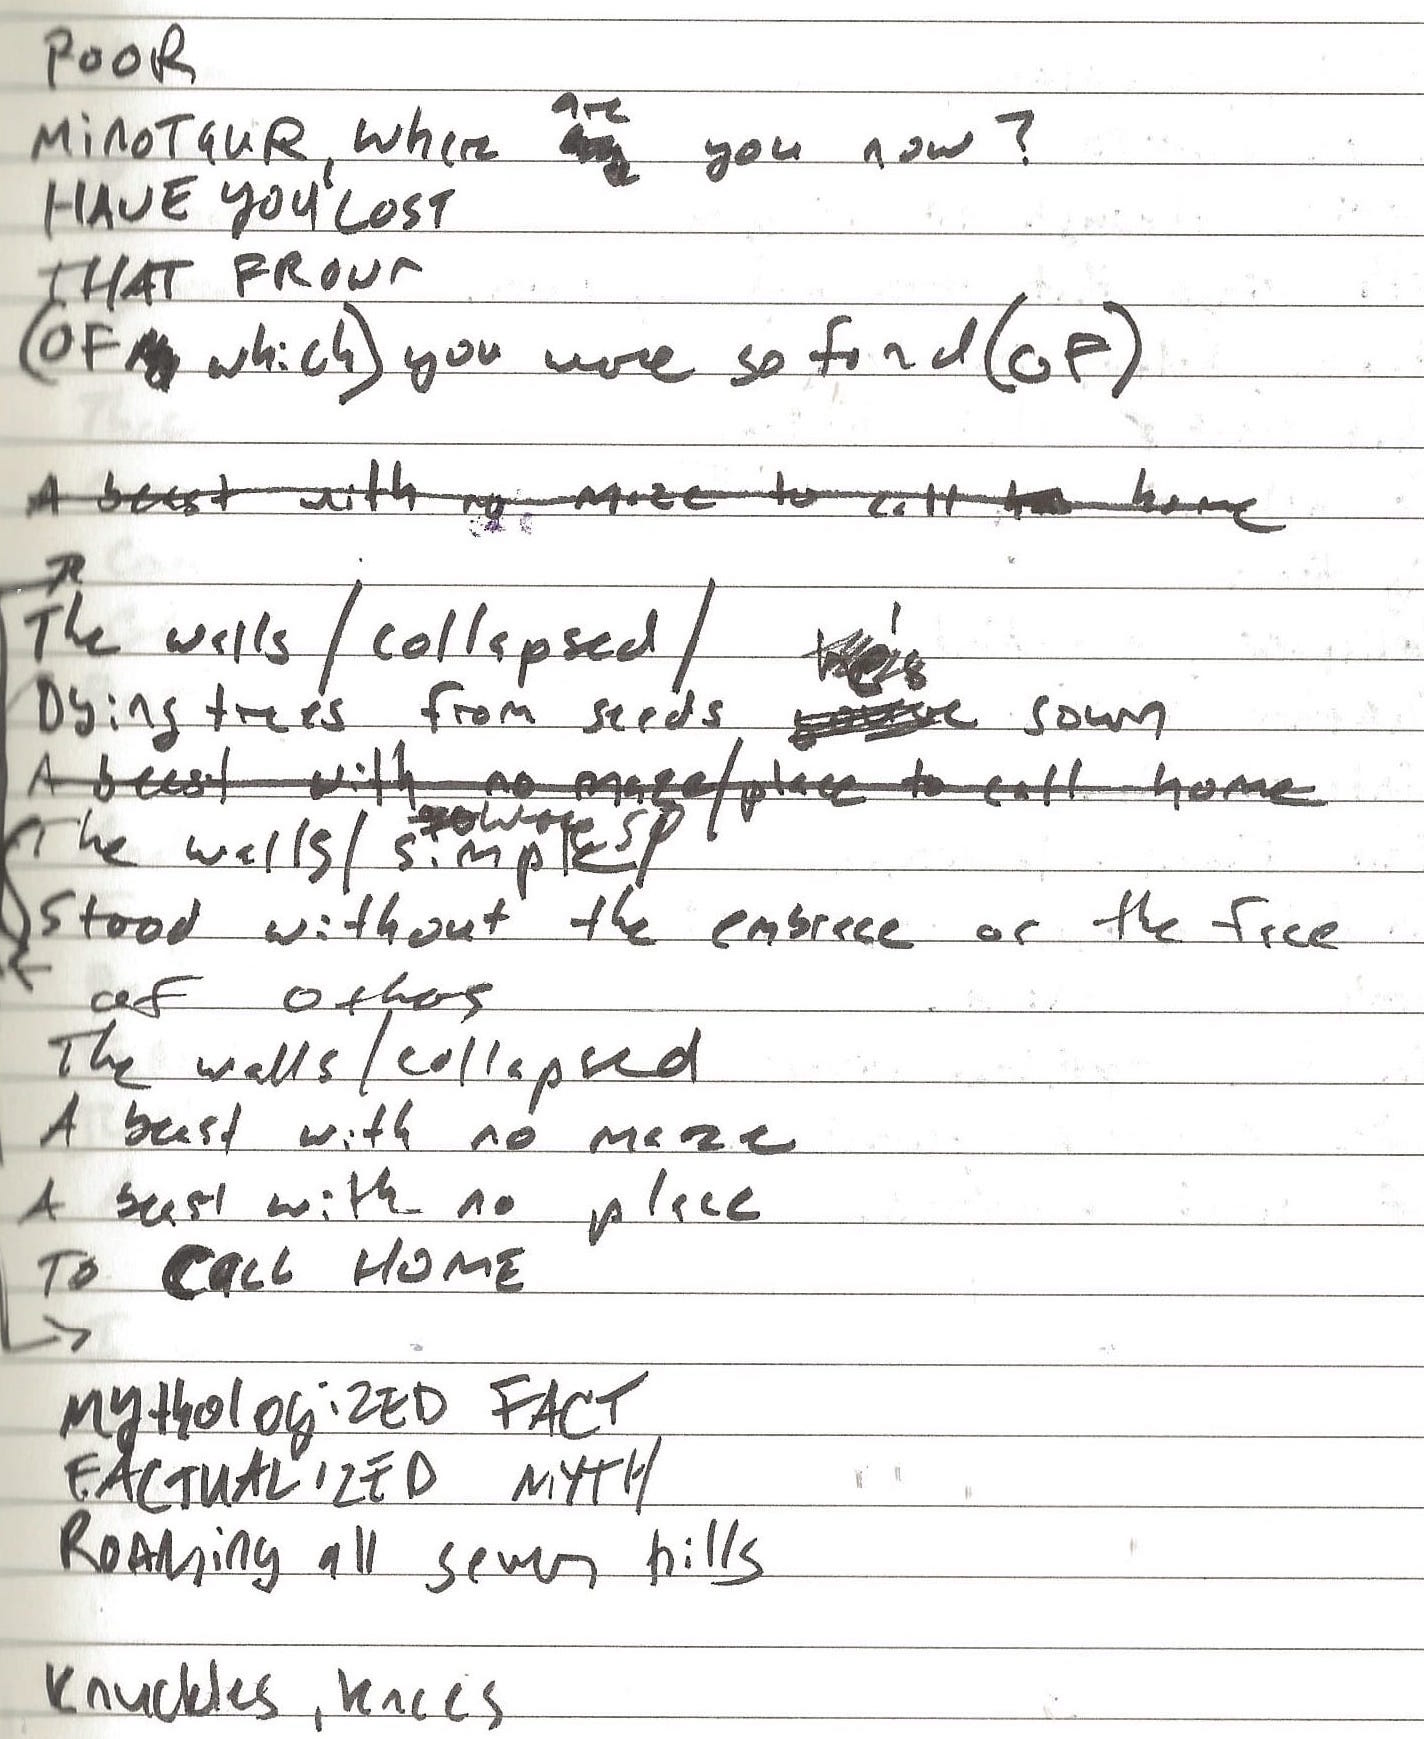 POOR
MINOTAUR, where are you now?
HAVE YOU LOST
THAT FROWN
(OF which) you were so fond (OF)
A beast with no maze to call home
The walls / collapsed /
Dying trees from seeds sown
A beast with no maze/place to call home
The walls / simple /
Stood without the embrace or the face
of others
The walls / collapsed
A beast with no maze
A beast with no place
TO CALL HOME
MYthologiZED FACT
FACTUALIZED MYTH
ROAMing all seven hills
Knuckles, knees